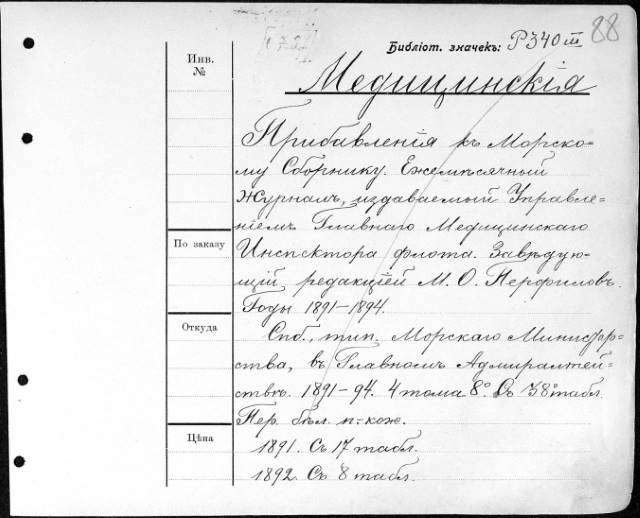 88
Библіот. значекъ: Р340 III
Инв.
№
Медицинскія
Прибавленія къ Морско-
му Сборнику. Ежемѣсячный
Журналъ, издаваемый Управле-
ніемъ Главнаго Медицинскаго
По заказу
Инспектора флота. Завѣдую-
щій редакціей М. О. Перфиловъ.
Годы 1891-1894.
Откуда
Спб., тип. Морскаго Министер-
ства, въ Главномъ Адмиралтей-
ствѣ. 1891-94. 4 тома 8°. Съ 38 табл.
Пер. бѣл. п.-кож.
Цѣна
1891. Съ 17 табл.
1892. Съ 8 табл.